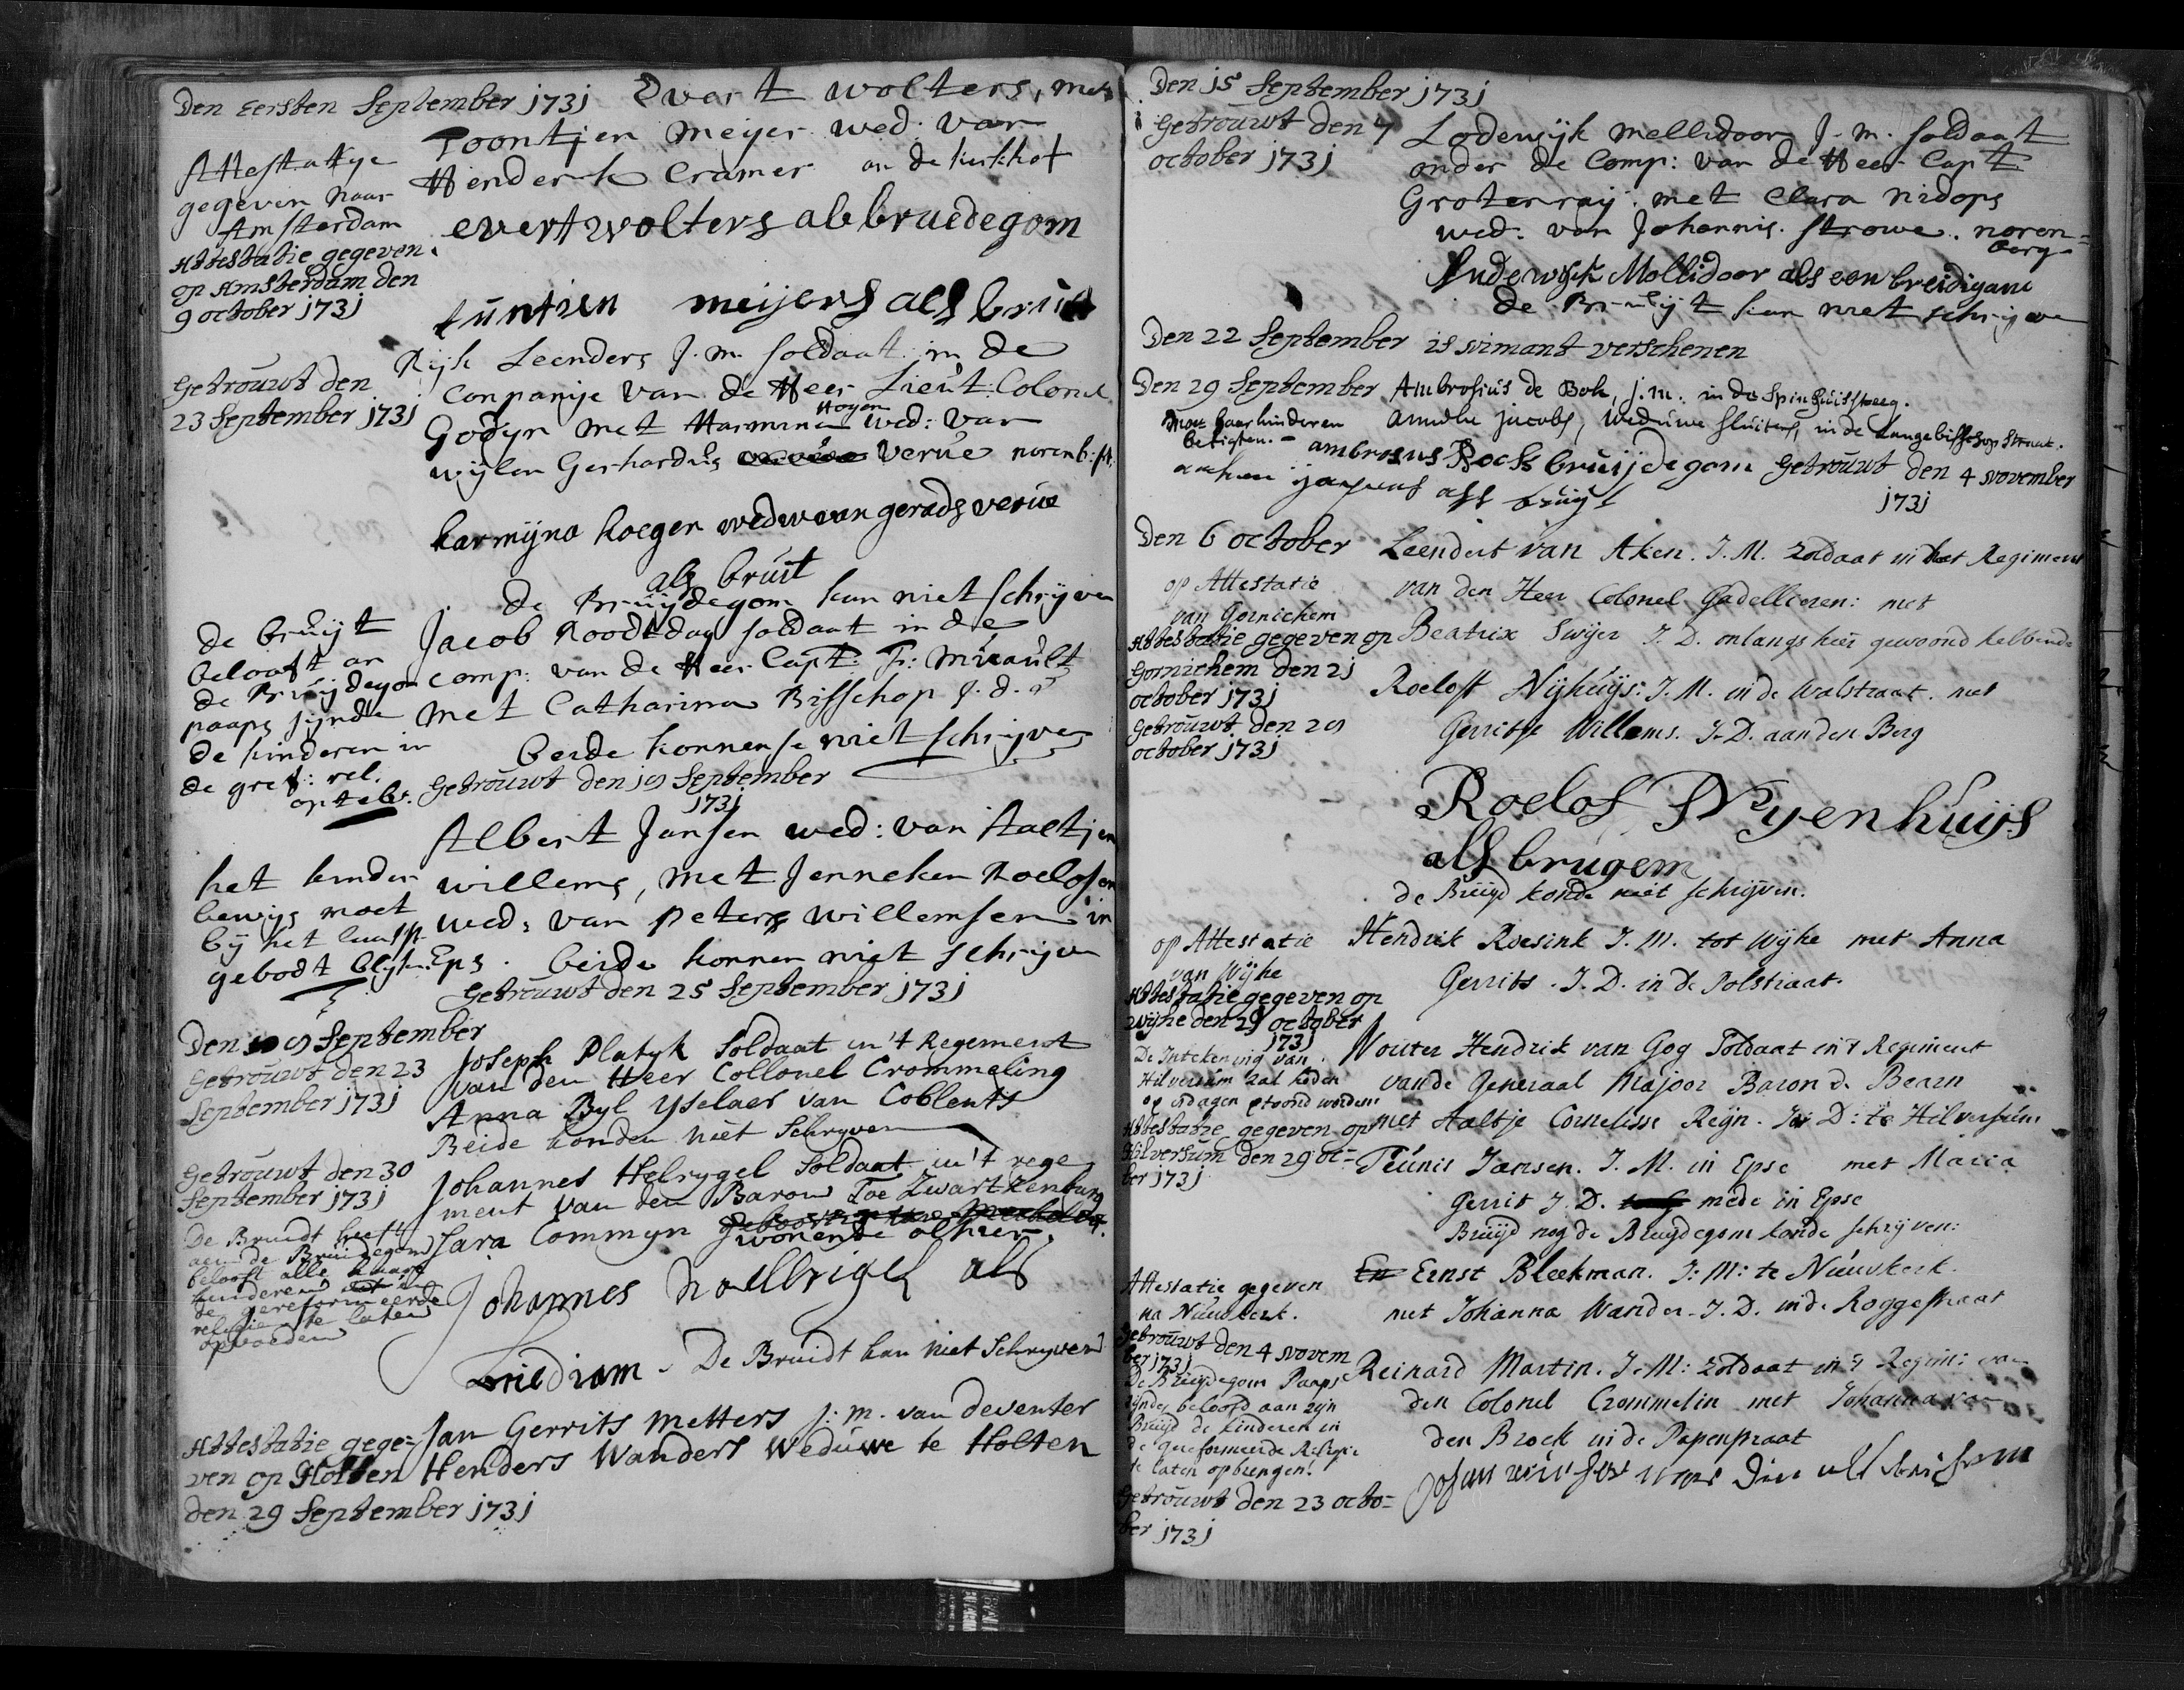 Den eersten September 1731 Evert wolters, met
Toontjen Meyer wed. van
Henderik Cramer an de kerkhof
Attestatye
gegeven naar
Amsterdam
Attestatie gegeven
op Amsterdam den
9 october 1731
evert wolters als bruedegom
tuntien meijers als bruit
Getrouwt den
23 September 1731
Rijk Leenders J. m. soldaat in de
Conpanije van de Heer Lieut: Colonel
Hoyen
Godyn met Harmina wed: van
wijlen Gerhardus Verue norenb: st:
harmijna hoegen weduwe van gerads verue
als bruit
de Bruijdegom kan niet schrijven
de bruijt
belooft an
de Bruijdegom
paaps sijnde
de kinderen in
de gref: rel.
op te br.
Jacob Roodtdag soldaat in de
Comp: van de Heer Capt: Fr: Mirault
met Catharina Bisschop J. d.
beide konnen se niet schrijven
Getrouwt den 19 September
1731
het kinder
bewijs moet
bij het laatst
gebodt blijken
Albert Jansen wed: van Aaltjen
willems, met Jenneken Roelofsen
wed: van Peters willemsen in
Eps. beide konnen niet schrijven
Getrouwt den 25 September 1731
Den 9 September
Getrouwt den 23
September 1731
Joseph Platyk Soldaat in 't Regement
van den Heer Collonel Crommeling
Anna Byl Yselaer van Coblents
Beide konden niet Schryven
Getrouwt den 30
September 1731
De Bruidt heeft
aen de Bruidegom
belooft alle haare
kinderen in
de gereformeerde
religie te laten
opvoeden
Johannes Helrygel Soldaat in 't rege
ment van den Baron Toe Zwartzenburg
Sara Commyn geboortig van
wonende alhier.
Johannes hoelbrigel als
Briediram. De Bruidt kan niet Schryven
Attestatie gege=
ven op Holten
den 29 September 1731
Jan Gerrits Metters J: m. van deventer
Henders Wanders Weduwe te Holten
Den 15 September 1731
Getrouwt den 7
october 1731
Lodewijk Mellidoor J. m. soldaat
onder de Comp: van de Heer Capt
Grotenraij. met Clara nidops
wed: van Johannis. Strowe. noren=
berg
Ludewyck Mollidoor als een breidigam
de Bruijt kan niet schrijven
Den 22 September is nimant verschenen
Den 29 September Ambrosius de Bok, j. m. in de Spinhuissteeg.
moet haar kinderen
betigten.
Jacobs, Weduwe Sluiters, in de Lange bisschop Straat.
ambrosus Bock bruijdegom Getrouwt den 4 November
1731
als bruijt
Den 6 October
op Attestatie
van Gornichem
Attestatie gegeven op
Gornichem den 21
october 1731
Leendert van Aken. J. M. Zoldaat in het Regiment
van den Heer Colonel Gadellieren: met
Beatrix Swijer J. D. onlangs hier gewoond hebbende
Getrouwt den 29
october 1731
Roeloff Nijhuijs: J. M. in de Walstraat. met
Gerritje Willems. J. D. aan den Berg
Roelof Nyenhuijs
als brugem
de Bruijd konde niet schrijven.
op Attestatie
van Wijhe
Attestatie gegeven op
Wijhe den 29 october
1731
Hendrik Roesink J. M. tot Wijhe met Anna
Gerrits. J. D. in de Polstraat.
De Intekening van
Hilversum zal heden
op 8 dagen getoond worden
Attestatie gegeven op
Hilversum den 29 oc=
ber 1731
Wouter Hendrik van Gog Soldaat in 't Regiment
van de Generaal Majoor Baron de Bearn
met Aaltje Cornelisse Reijn. J: D: te Hilversum
Teunis Jansen. J. M. in Epse met Maria
Gerrit J. D. mede in Epse
Bruijd nog de Bruijdegom konde schrijven:
Attestatie gegeven
na Nieuwkerk.
Getrouwt den 4 Novem
ber 1731
En Ernst Bleekman. J: M: te Nieuwkerk.
met Johanna Wander. J. D. in de Roggestraat
De Bruijdegom Paaps
zijnde, beloofd aan zijn
Bruijd de kinderen in
de gereformeerde Religie
te laten opbrengen.
Getrouwt den 23 octo=
ber 1731
Reinard Martin. J. M: Zoldaat in 't Regim: van
den Colonel Crommelin met Johanna van
den Broek in de Papenstraat